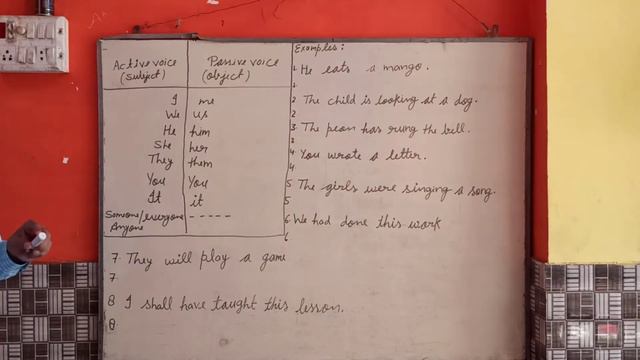 Active voice
(Subject)
Passive voice
(object)
I me
We us
He him
She her
They them
You You
It it
Someone/everyone -----
Anyone
Examples:
1. He eats a mango.
1.
2. The child is looking at a dog.
2
3. The peon has rung the bell.
3
4. You wrote a letter.
4
5 The girls were singing a song.
5
6 We had done this work
6
7. They will play a game
7.
8 I shall have taught this lesson.
8